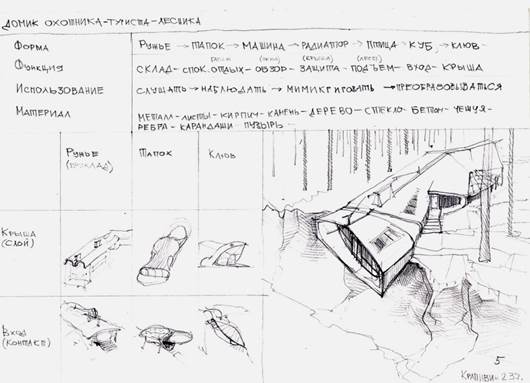 ДОМИК ОХОТНИКА-ТУРИСТА-ЛЕСНИКА
ФОРМА РУЖЬЕ → ТАПОК → МАШИНА → РАДИАТОР → ПТИЦА → КУБ → КЛЮВ
ФУНКЦИЯ СКЛАД - СПОК. ОТДЫХ - ОБЗОР - ЗАЩИТА - ПОДЪЕМ - ВХОД - КРЫША
ИСПОЛЬЗОВАНИЕ СЛУШАТЬ → НАБЛЮДАТЬ → МИМИКРИРОВАТЬ → ПРЕОБРАЗОВЫВАТЬСЯ
МАТЕРИАЛ МЕТАЛЛ - ЛИСТЫ - КИРПИЧ - КАМЕНЬ - ДЕРЕВО - СТЕКЛО - БЕТОН - ЧЕШУЯ -
РЕБРА - КАРАНДАШИ ПУЗЫРЬ
РУЖЬЕ ТАПОК КЛЮВ
КРЫША
(СЛОЙ)
ВХОД
(КОНТАКТ)
5